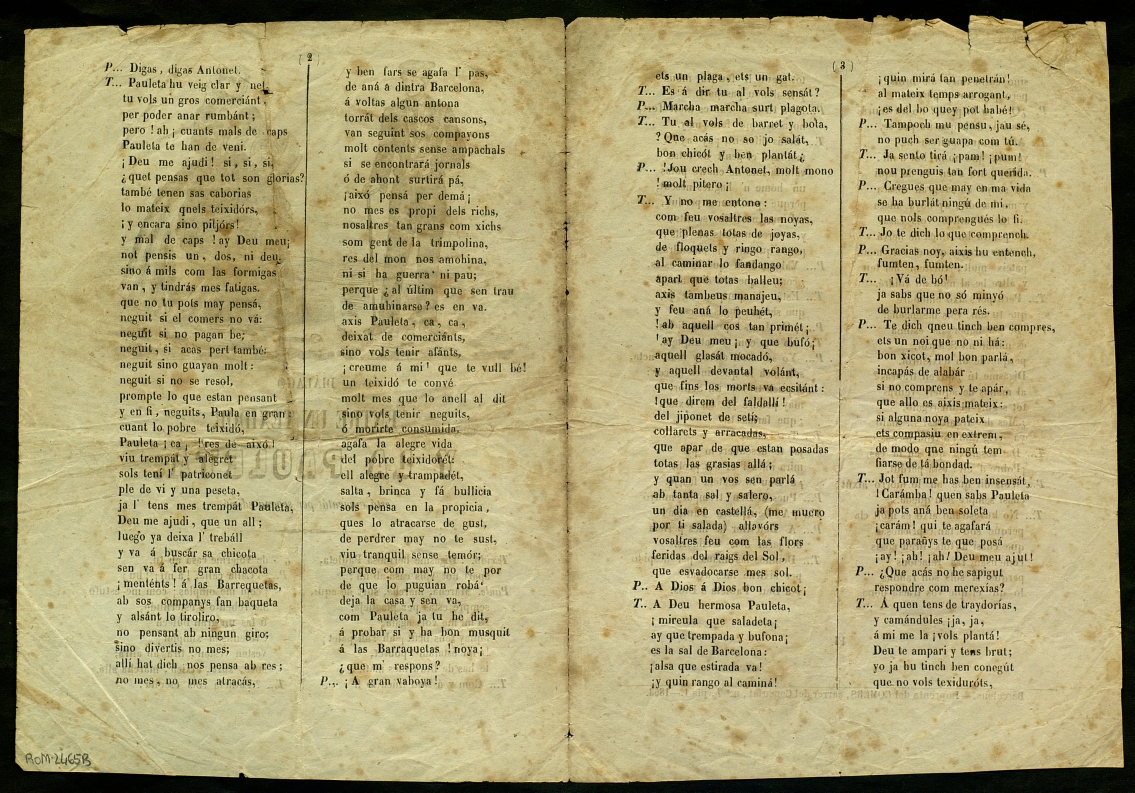 ( 2
P... Digas, digas Antonet.
T... Pauleta hu veig clar y net,
tu vols un gros comerciánt,
per poder anar rumbánt;
pero ! ah ¡ cuants mals de caps
Pauleta te han de veni.
¡ Deu me ajudi ! si, si, si,
¿quet pensas que tot son glorias?
també tenen sas caborias
lo mateix quels teixidórs,
¡ y encara sino piljórs!
y mal de caps ! ay Deu meu;
not pensis un, dos, ni deu,
sino á mils com las formigas
van, y tindrás mes fatigas.
que no tu pots may pensá,
neguit si el comers no vá:
neguit si no pagan be;
neguit, si acas pert també:
neguit sino guayan molt:
neguit si no se resol,
prompte lo que estan pensant
y en fi, neguits, Paula en gran:
cuant lo pobre teixidó,
Pauleta ¡ ca, !res de aixó!
viu trempát y alegret
sols tení l' patriconet
ple de vi y una peseta,
ja l' tens mes trempát Pauleta,
Deu me ajudi, que un all;
luego ya deixa l' trebáll
y va á buscár sa chicota
sen va á fer gran chacota
¡ menténts ! á las Barrequetas,
ab sos companys fan baqueta
y alsánt lo tiroliro,
no pensant ab ningun giro;
sino divertis no mes;
allí hat dich nos pensa ab res;
no mes, no mes atracás,
y ben fars se agafa l' pas,
de aná á dintra Barcelona,
á voltas algun antona
torrát dels cascos cansons,
van seguint sos compayons
molt contents sense ampachals
si se encontrará jornals
ó de ahont surtirá pá,
¡aixó pensá per demá;
no mes es propi dels richs,
nosaltres tan grans com xichs
som gent de la trimpolina,
res del mon nos amohina,
ni si ha guerra ni pau;
perque ¿al últim que sen trau
de amuhinarse? es en va.
axis Pauleta, ca, ca,
deixat de comerciánts,
sino vols tenir afánts,
¡ creume á mi ! que te vull bé!
un teixidó te convé
molt mes que lo anell al dit
sino vols tenir neguits,
ó morirte consumida.
agafa la alegre vida
del pobre teixidorét:
ell alegre y trampadét,
salta, brinca y fá bullicia
sols pensa en la propicia,
ques lo atracarse de gust,
de perdrer may no te sust,
viu tranquil sense temór;
perque com may no te por
de que lo puguian robá
deja la casa y sen va,
com Pauleta ja tu he dit,
á probar si y ha bon musquit
á las Barraquetas ! noya ¡
¿que m' respons?
P... ¡ A gran vaboya!
( 3 )
ets un plaga, ets un gat.
T... Es á dir tu al vols sensát?
P... Marcha marcha surt plagota.
T... Tu al vols de barret y bola,
? Que acás no so jo salát,
bon chicót y ben plantát¿
P... !Jou crech Antonet, molt mono
! molt pitero ¡
T... Y no me entono:
com feu vosaltres las noyas,
que plenas totas de joyas,
de floquets y ringo rango,
al caminar lo fandango
apart que totas balleu;
axis tambeus manajeu,
y feu aná lo peuhét,
! ab aquell cos tan primét ¡
! ay Deu meu ¡ y que bufó¡
aquell glasát mocadó,
y aquell devantal volánt,
que fins los morts va ecsitánt:
!que direm del faldalli!
del jiponet de seti;
collarets y arracadas,
que apar de que estan posadas
totas las grasias allá;
y quan un vos sen parlá
ab tanta sal y salero,
un dia en castellá, (me muero
por ti salada) allavórs
vosaltres feu com las flors
feridas del raigs del Sol,
que esvadocarse mes sol.
P.. A Dios á Dios bon chicot¡
T.. A Deu hermosa Pauleta,
¡ mireula que saladeta¡
ay que trempada y bufona¡
es la sal de Barcelona:
¡alsa que estirada va!
¡y quin rango al caminá!
¡quin mirá tan penetrán!
al mateix temps arrogant,
¡es del bo quey pot habé!
P... Tampoch mu pensu, jau sé,
no puch ser guapa com tú.
T... Ja sento tirá ¡pam! ¡pum!
nou prenguis tan fort querida.
P... Cregues que may en ma vida
se ha burlát ningú de mi,
que nols comprengués lo fi.
T... Jo te dich lo que comprench.
P... Gracias noy, aixis hu entench,
fumten, fumten.
T... ¡Vá de bó!
ja sabs que no só minyó
de burlarme pera rés.
P... Te dich qneu tinch ben compres,
ets un noi que no ni há:
bon xicot, mol bon parlá,
incapás de alabár
si no comprens y te apár,
que allo es aixis mateix:
si alguna noya pateix
ets compasiu en extrem,
de modo que ningú tem
fiarse de tá bondad.
T... Jot fum me has ben insensát,
! Carámba! quen sabs Pauleta
ja pots aná ben soleta
¡carám! qui te agafará
que parañys te que posá
¡ay! ¡ah! ¡ah! Deu meu ajut!
P... ¿Que acás no he sapigut
respondre com merexias?
T... Á quen tens de traydorías,
y camándules ¡ja, ja,
á mi me la ¡vols plantá!
Deu te ampari y tens brut;
yo ja hu tinch ben conegút
que no vols texiduróts,
ROM-2465B